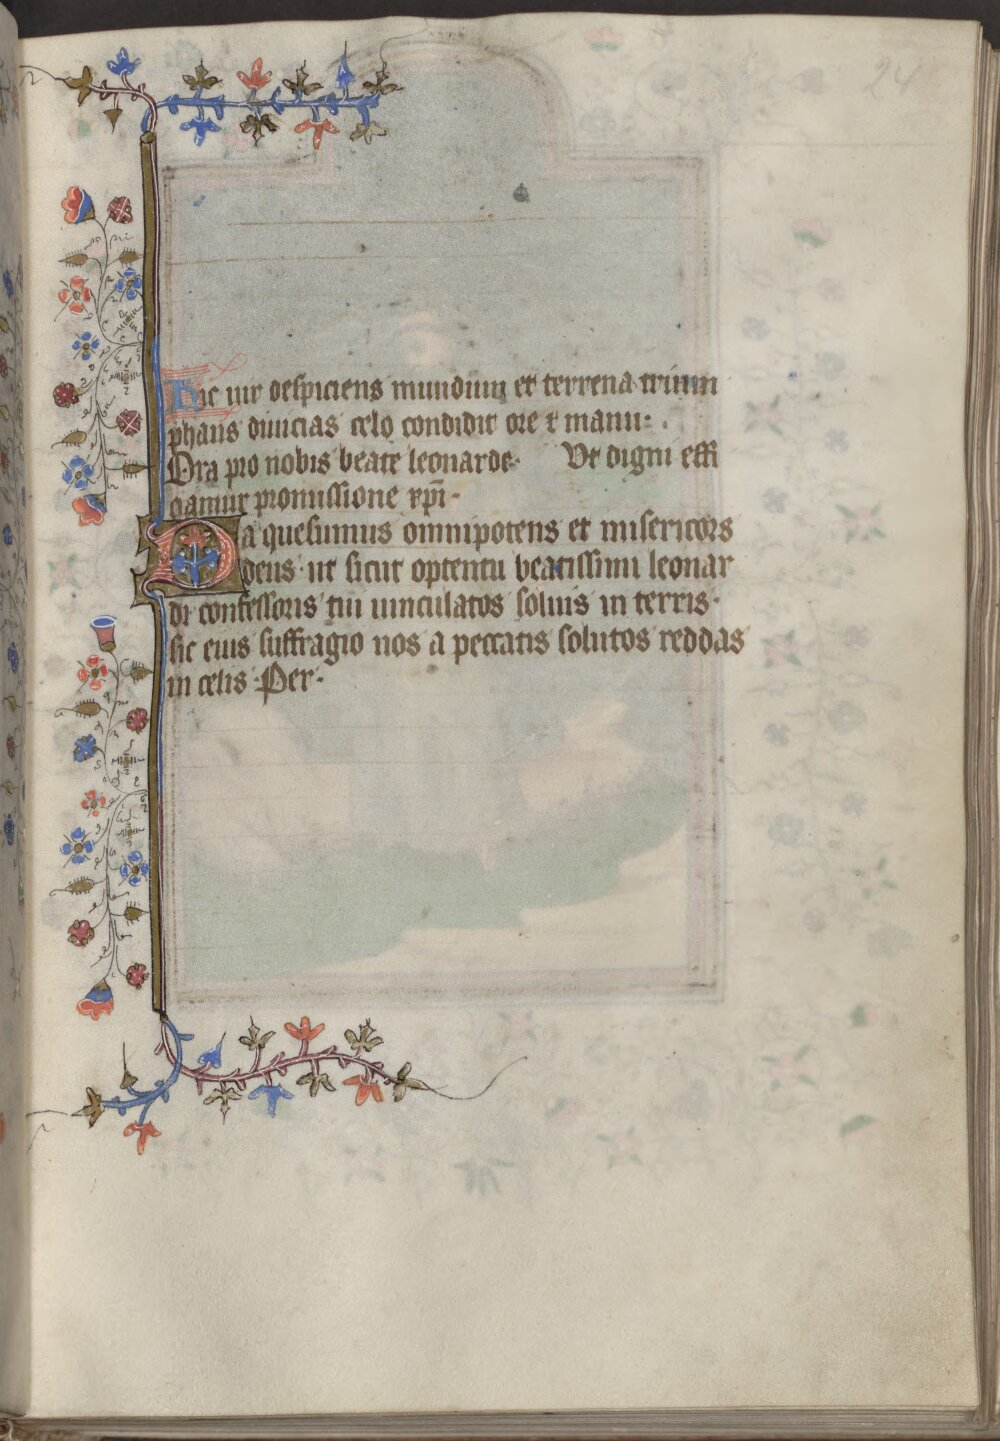 24
Hic uir despiciens mundum et terrena trium
phans diuicias celo condidit ore ⁊ manu:.
Ora pro nobis beate leonarde· Vt digni effi
ciamur promissione xp̄i·
Da quesumus omnipotens et misericors
deus· ut sicut optentu beatissimi leonar
di confessoris tui uinculatos soluis in terris·
sic eius suffragio nos a peccatis solutos reddas
in celis· Per·